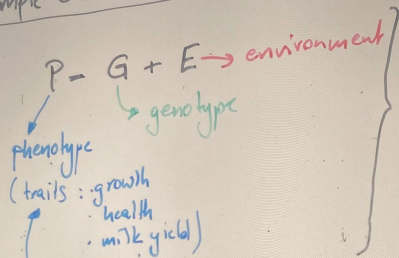 P = G + E → environment
genotype
phenotype
(traits : · growth
· health
· milk yield)